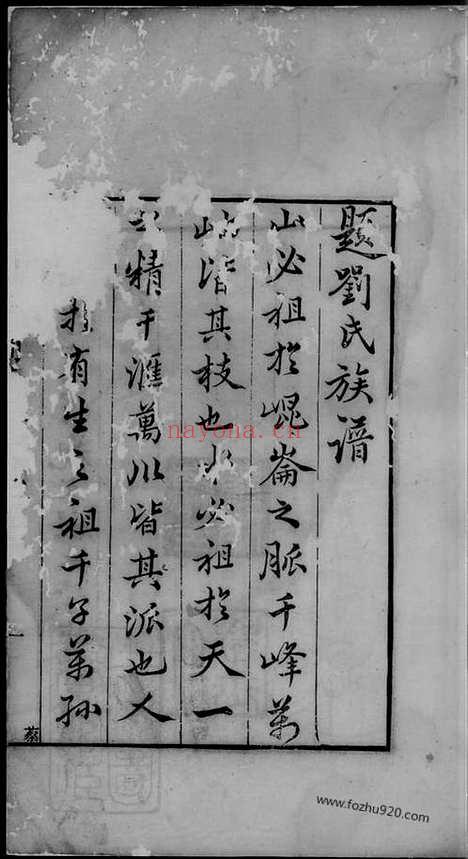 題劉氏族譜
山必祖於崐崙之脈千峰萬
皆其枝也水必祖於天一
精千滙萬川皆其派也人
有生之祖千子萬孫
nayona.cn
www.fozhu920.com